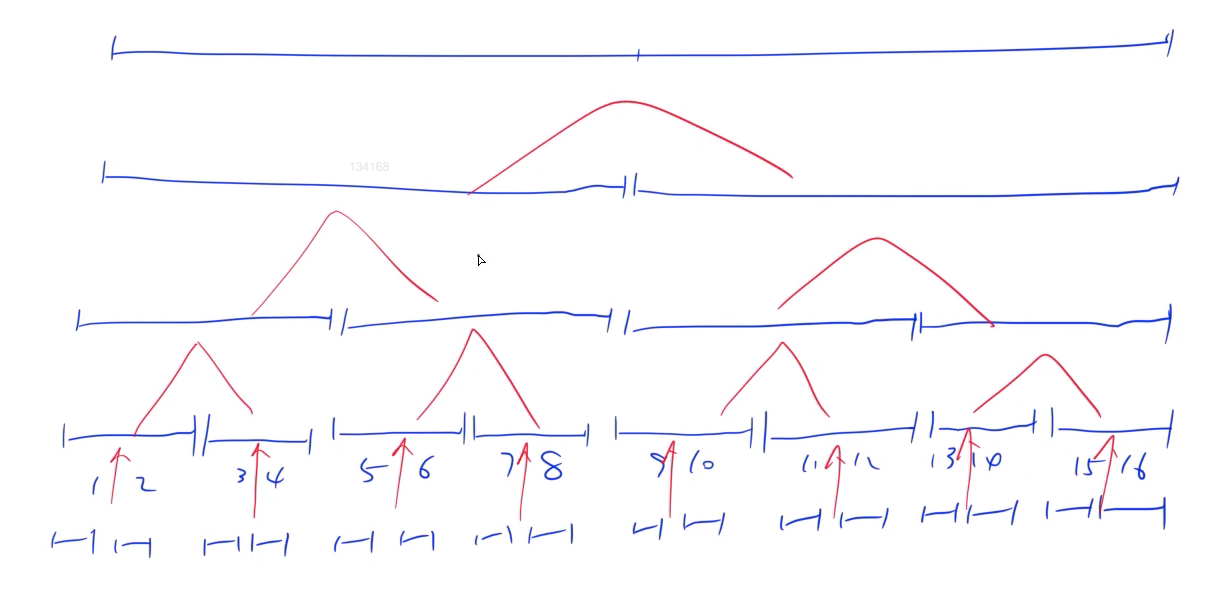 134168
1 2 3 4 5 6 7 8 9 10 11 12 13 14 15 16